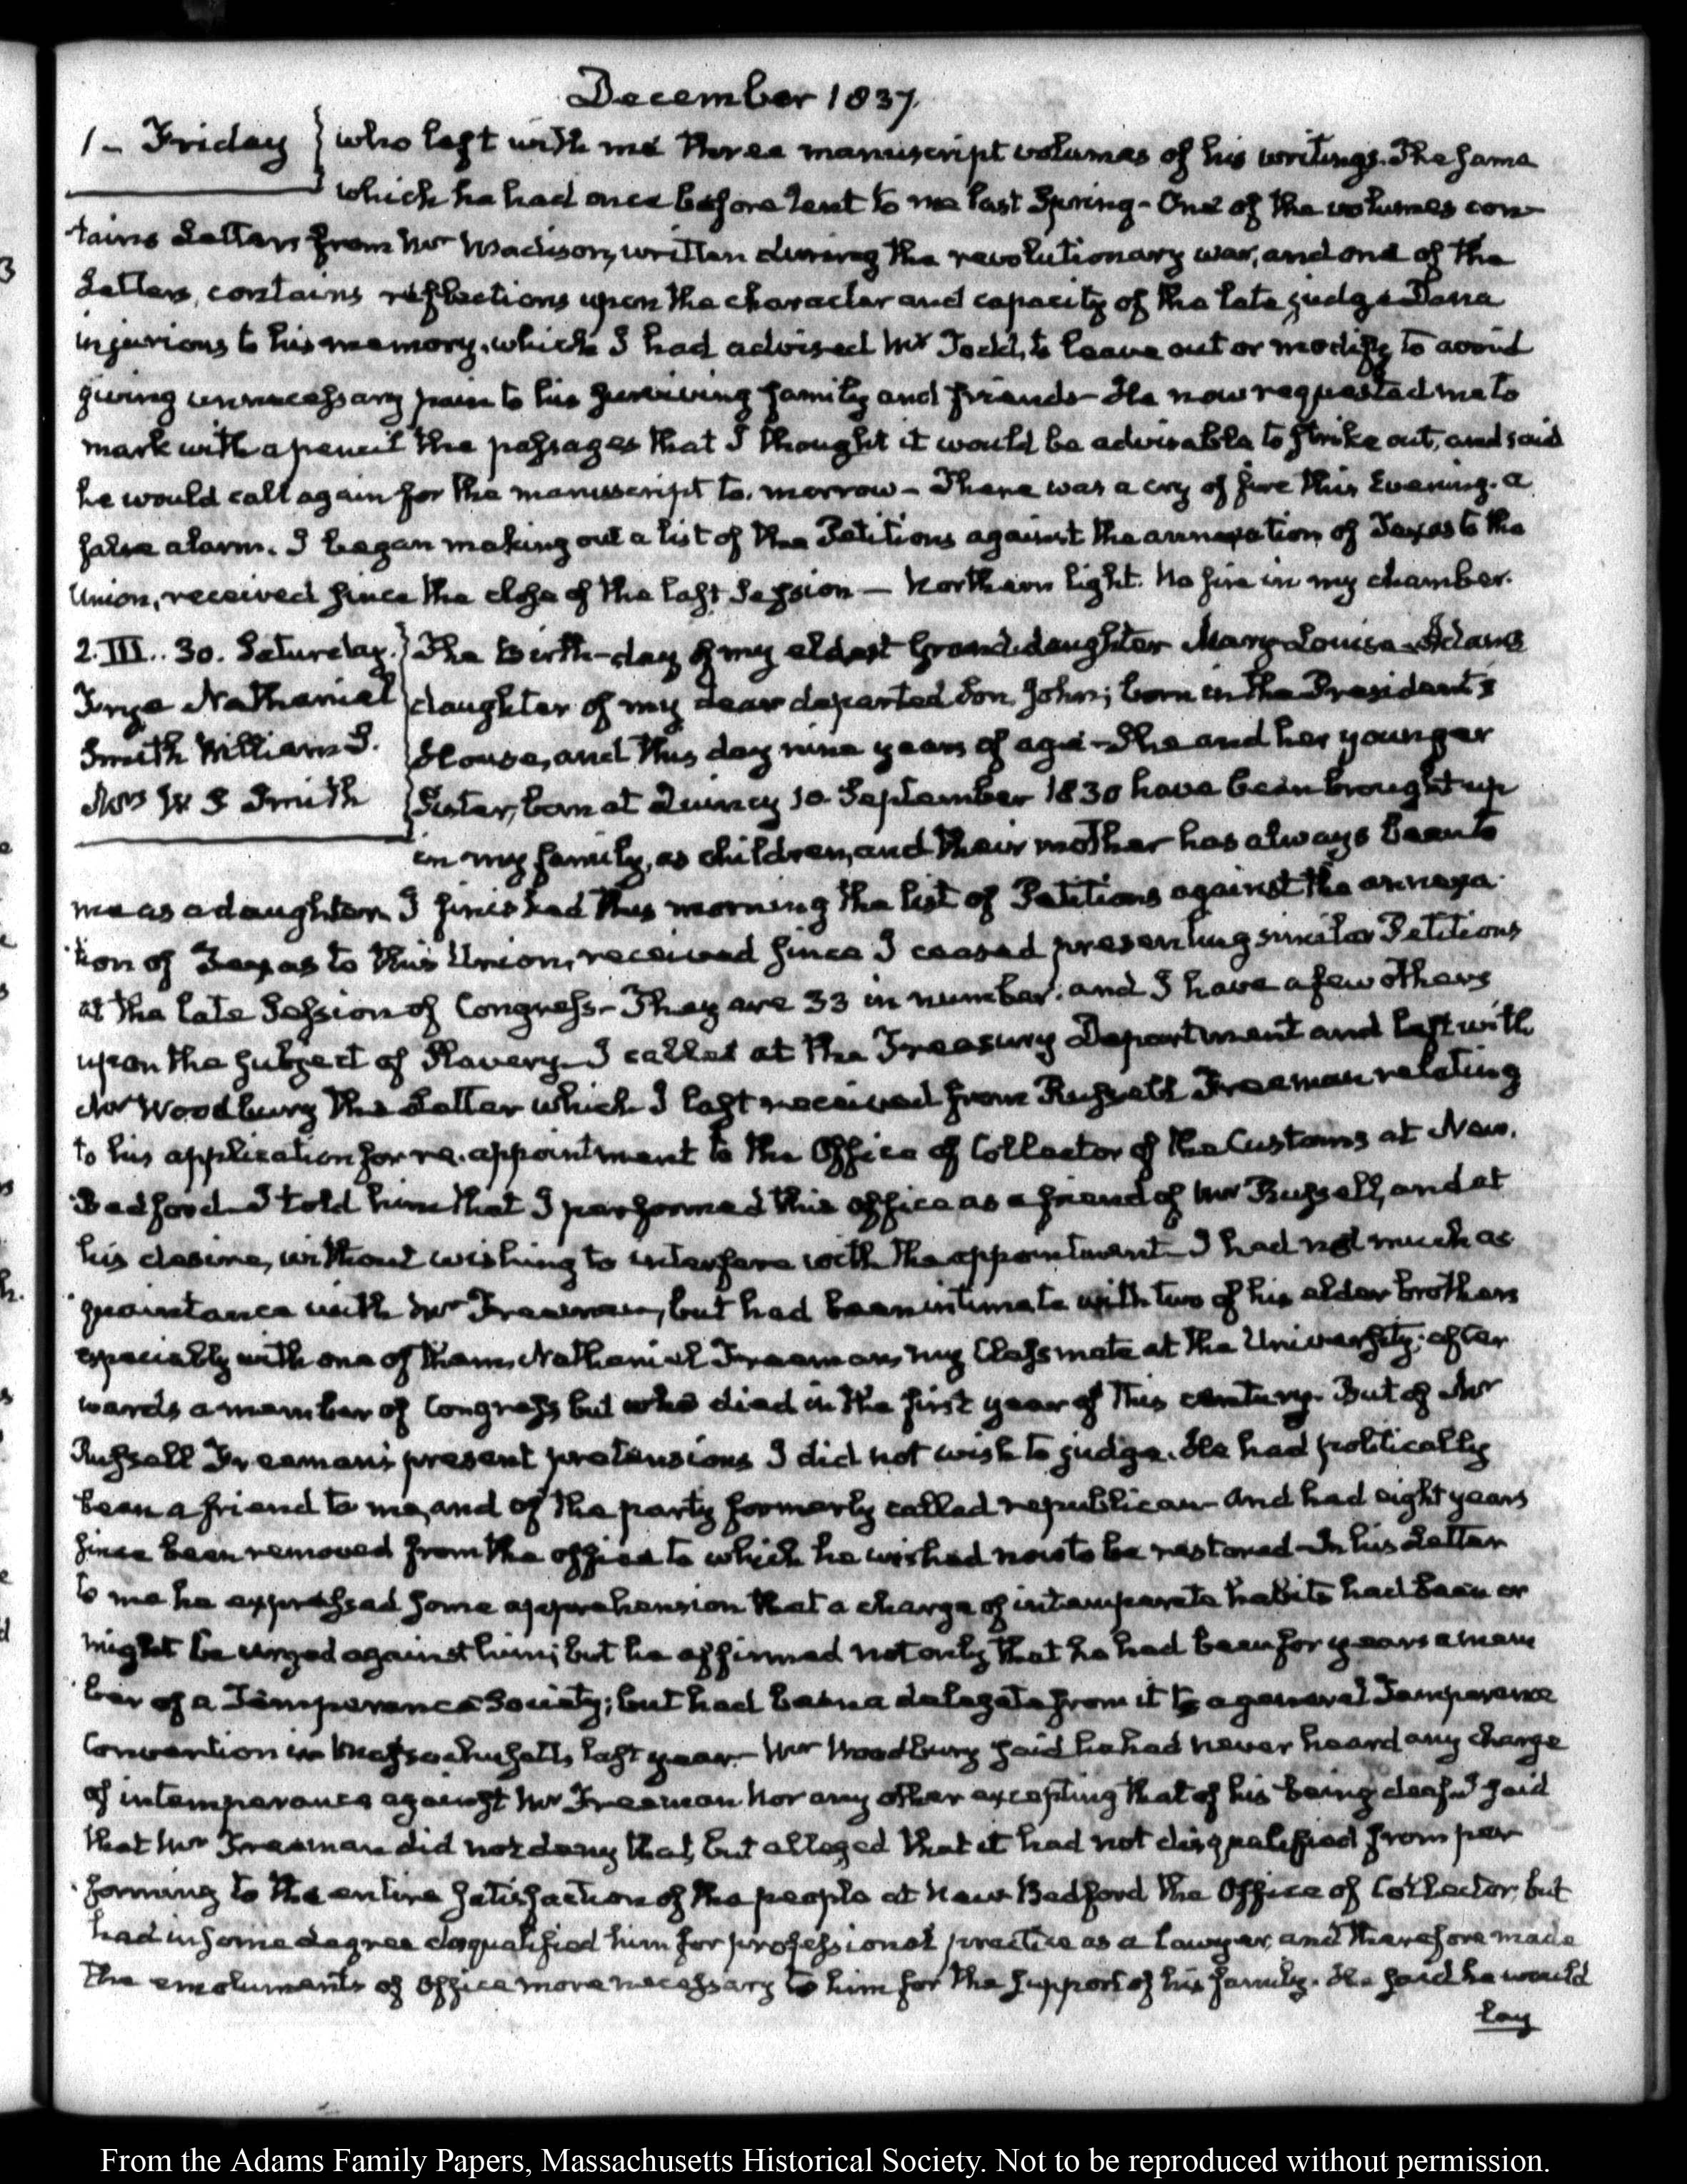 December 1837.
1 - Friday } who left with me three manuscript volumes of his writings. The same
which he had once before lent to me last Spring - One of the volumes con-
tains Letters from Mr Madison, written during the revolutionary war, and one of the
Letters, contains reflections upon the character and capacity of the late judge Dana
injurious to his memory, which I had advised Mr Todd, to leave out or modify to avoid
giving unnecessary pain to his surviving family and friends - He now requested me to
mark with a pencil the passages that I thought it would be advisable to strike out, and said
he would call again for the manuscript to-morrow - There was a cry of fire this Evening. a
false alarm. I began making out a list of the Petitions against the annexation of Texas to the
Union, received since the close of the last Session — Northern light. No fire in my chamber.
2. III.. 30. Saturday. } The Birth-day of my eldest Granddaughter Mary-Louisa Adams
Nathaniel } daughter of my dear departed Son John; born in the President's
Smith William S. } House, and this day nine years of age - She and her younger
Mrs W S Smith } Sister, born at Quincy 10 September 1830 have been brought up
in my family, as children, and their mother has always been to
me as a daughter. I finished this morning the list of Petitions against the annexa-
tion of Texas to this Union, received since I ceased presenting similar Petitions
at the late Session of Congress - They are 33 in number; and I have a few others
upon the subject of Slavery - I called at the Treasury Department and left with
Mr Woodbury the Letter which I last received from Russell Freeman relating
to his application for re-appointment to the Office of Collector of the Customs at New-
Bedford - I told him that I performed this office as a friend of Mr Russell, and at
his desire, without wishing to interfere with the appointment - I had not much ac-
quaintance with Mr Freeman, but had been intimate with two of his elder brothers
especially with one of them, Nathaniel Freeman, my Classmate at the University; after-
wards a member of Congress but who died in the first year of this century. But of Mr
Russell Freeman's present pretensions I did not wish to judge. He had politically
been a friend to me, and of the party formerly called republican - and had eight years
since been removed from the office to which he wished now to be restored - In his Letter
to me he expressed some apprehension that a charge of intemperate habits had been or
might be urged against him; but he affirmed not only that he had been for years a mem-
ber of a Temperance Society; but had been a delegate from it to a general Temperance
Convention in Massachusetts last year - Mr Woodbury said he had never heard any charge
of intemperance against Mr Freeman nor any other excepting that of his being deaf. I said
that Mr Freeman did not deny that, but alleged that it had not disqualified from per-
forming to the entire satisfaction of the people at New Bedford the Office of Collector, but
had in some degree disqualified him for professional practice as a lawyer, and therefore made
the emoluments of Office more necessary to him for the support of his family. He said he would
lay
From the Adams Family Papers, Massachusetts Historical Society. Not to be reproduced without permission.